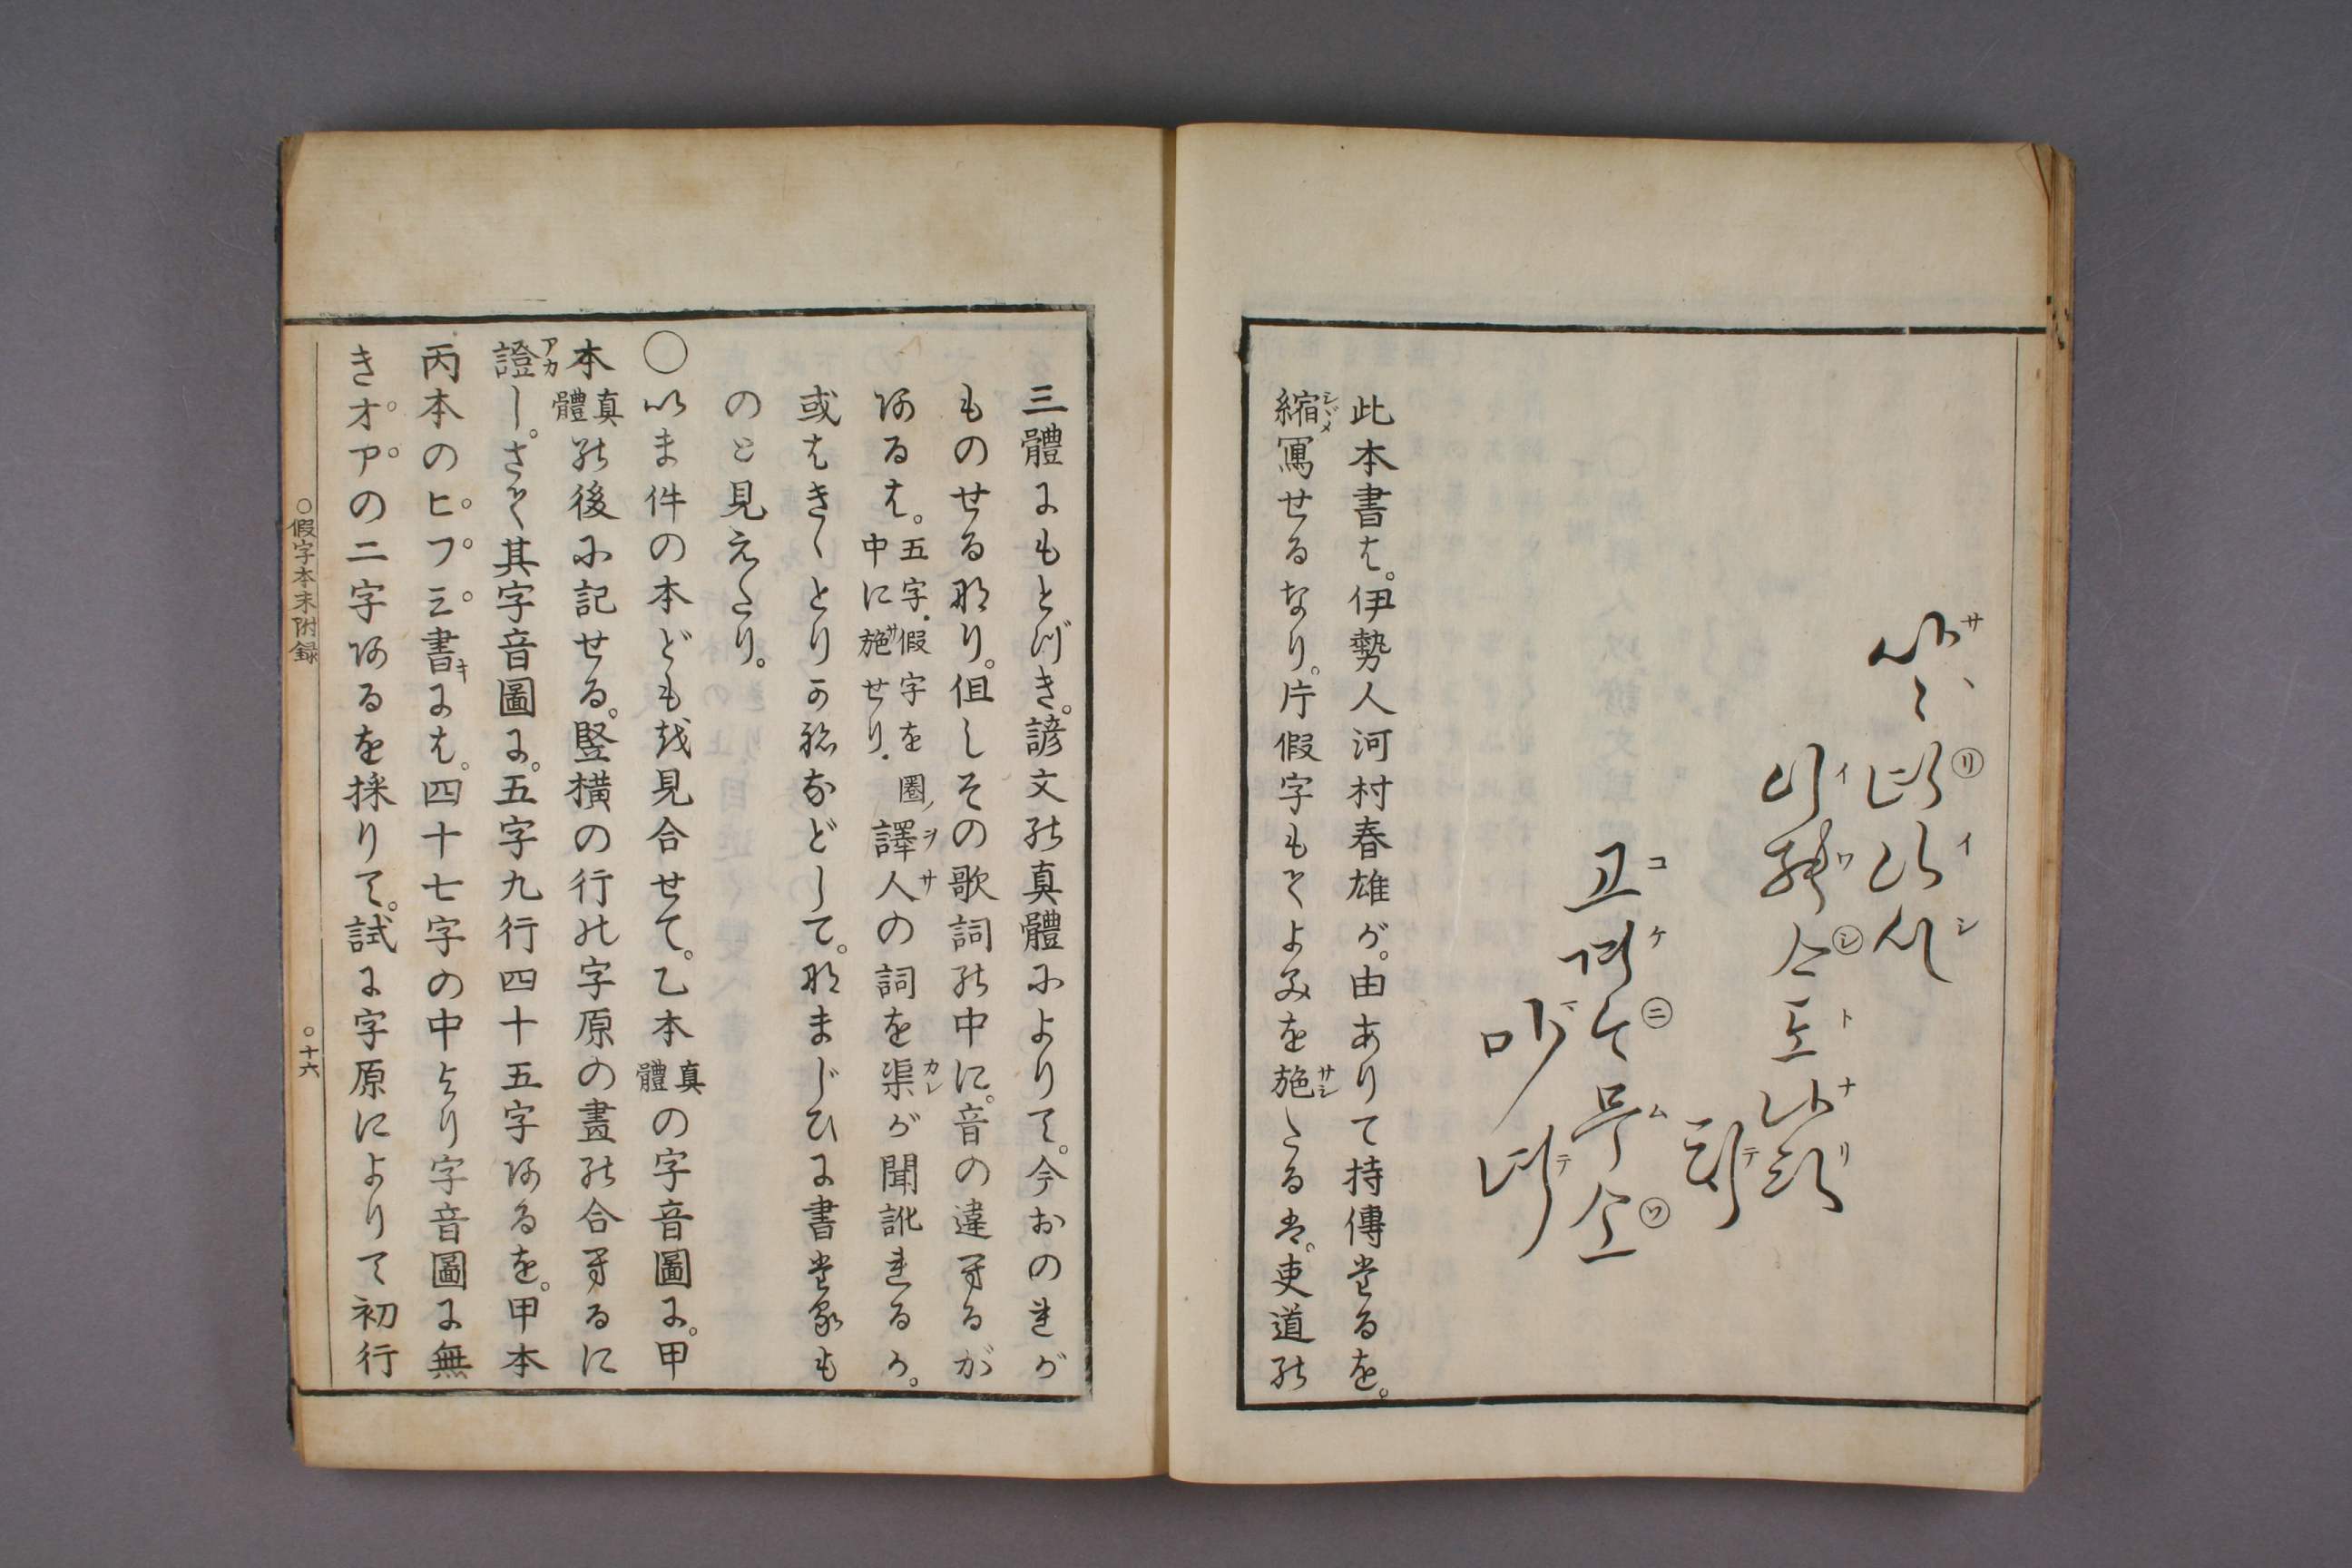 사〻려이시
이와스도나리
텨
고켜노무소
마뎌
此本書は。伊勢人河村春雄が。由ありて持傳たるを。
縮冩せるなり。片假字もてよみを施したるは。吏道の
三體にもとづき。諺文の真體によりて。今おのれが
ものせるなり。但しその歌詞の中に。音の違へるが
あるは。五字・假字を圏ノ中に施せり・譯人の詞を渠が聞訛れるか。
或はきゝとりかねなどして。なまじひに書たるも
のと見えたり。
○いま件の本どもを見合せて。乙本真體の字音圖に。甲
本真體の後に記せる。竪横の行の字原の畫の合へるに
證し。さて其字音圖に。五字九行四十五字あるを。甲本
丙本のヒ。フ。ミ。書には。四十七字の中より字音圖に無
きオ。ア。の二字あるを採りて。試に字原によりて初行
○假字本末附録
○十六